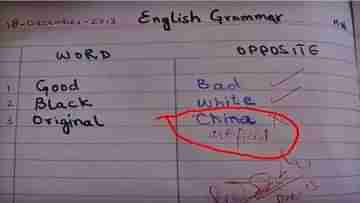 18-December-2013 English Grammar
WORD OPPOSITE
1 Good Bad
2 Black White
3 Original China